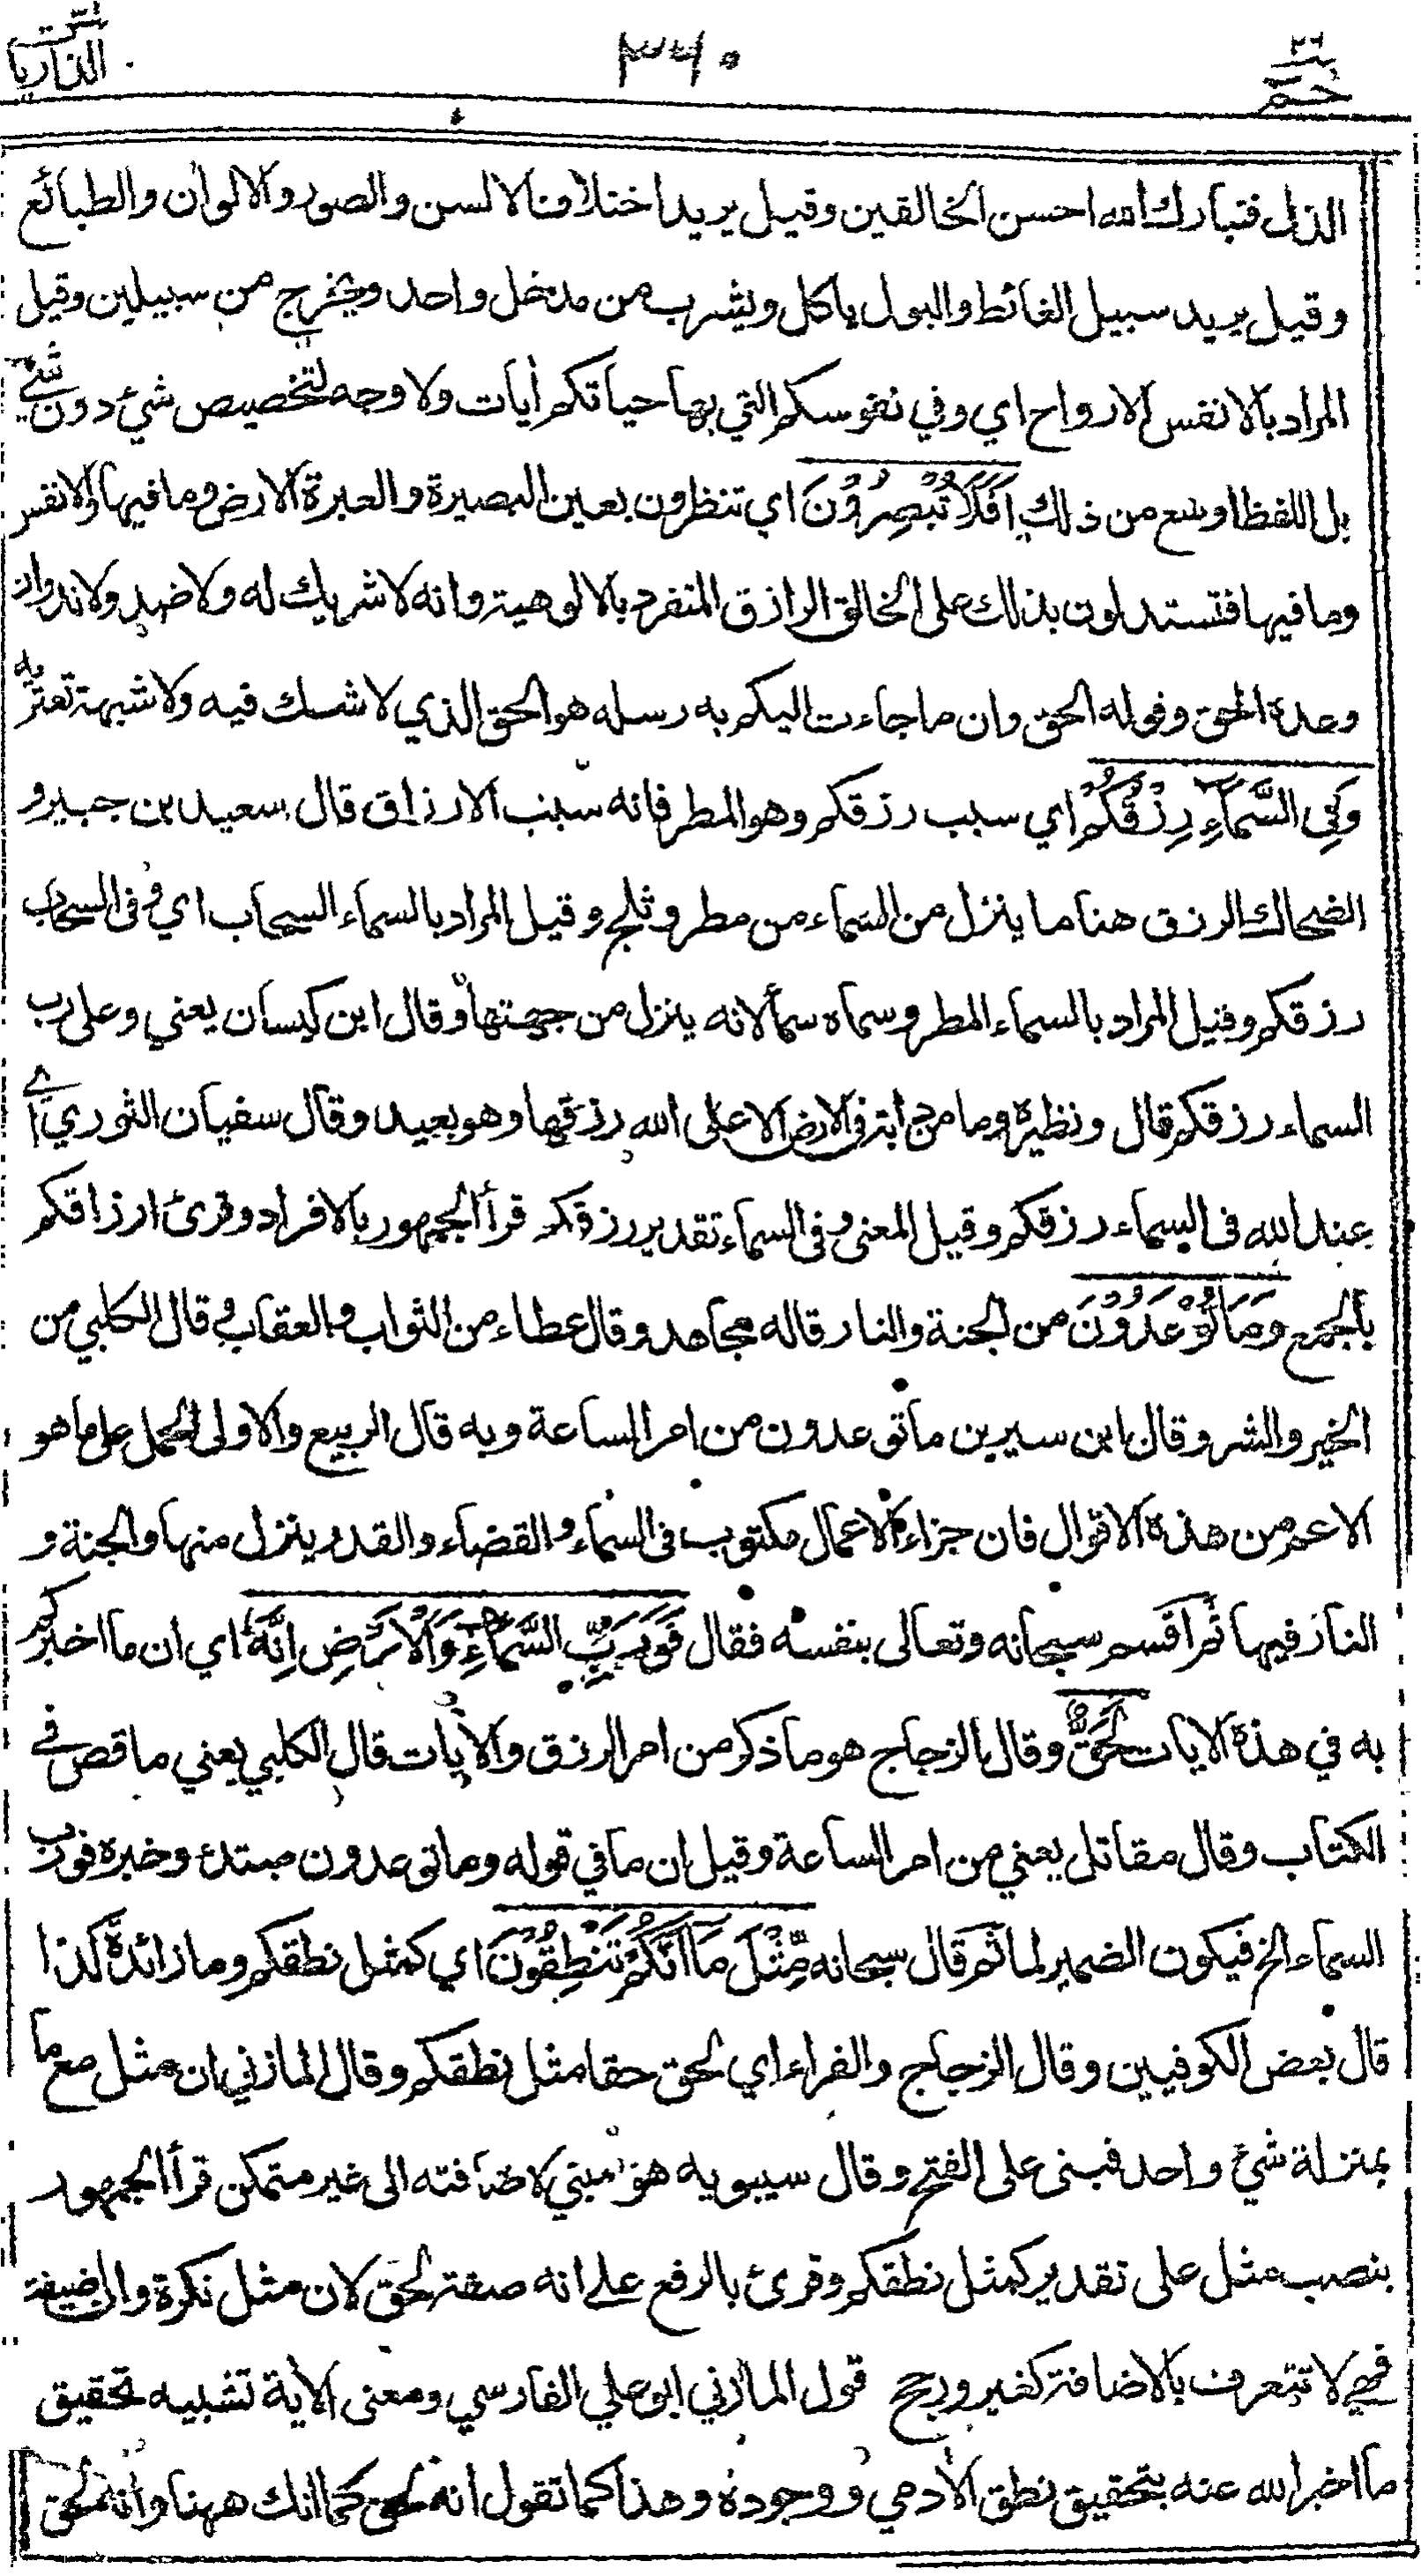 حم ٢٦
٣٦٠
الذاريات
الذل فتبارك الله احسن الخالقين وقيل يريد اختلاف الالسن والصور والالوان والطبائع
وقيل يريد سبيل الغائط والبول ياكل ويشرب من مدخل واحد ويخرج من سبيلين وقيل
المراد بالانفس الارواح اي وفي نفوسكم التي بها حياتكم أيات ولا وجه لتخصيص شيء دون شيء
بل اللفظ اوسع من ذلك اَفَلَا تُبْصِرُوْنَ اي تنظرون بعين البصيرة والعبرة الارض وما فيها والانفس
وما فيها فتستدلون بذلك على الخالق الرازق المتفرد بالالوهية وانه لا شريك له ولا ضد ولا ند وان
وعده الحق وقوله الحق وان ما جاءت اليكم به رسله هو الحق الذي لا شك فيه ولا شبهة تعتريه
وَفِي السَّمَاءِ رِزْقُكُمْ اي سبب رزقكم وهو المطر فانه سبب الارزاق قال سعيد بن جبير و
الضحاك الرزق هنا ما ينزل من السماء من مطر وثلج وقيل المراد بالسماء السحاب اي وفى السحاب
رزقكم وقيل المراد بالسماء المطر وسماه سمأ لانه ينزل من جهتها وقال ابن كيسان يعني وعلى رب
السماء رزقكم قال ونظيره وما من دابة فى الارض الا على الله رزقها وهو بعيد وقال سفيان الثوري اي
عند الله فى السماء رزقكم وقيل المعنى وفى السماء تقدير رزقكم قرأ الجمهور بالافراد وقرئ ارزاقكم
بالجمع وَمَا تُوْعَدُوْنَ من الجنة والنار قاله مجاهد وقال عطاء من الثواب والعقاب وقال الكلبي من
الخير والشر وقال ابن سيرين ما توعدون من امر الساعة وبه قال الربيع والاولى الحمل على ما هو
الاعم من هذه الاقوال فان جزاء الاعمال مكتوب فى السماء والقضاء والقدر ينزل منها والجنة و
النار فيها ثم اقسم سبحانه وتعالى بنفسه فقال فَوَرَبِّ السَّمَاءِ وَالْاَرْضِ اِنَّهُ اي ان ما اخبركم
به في هذه الايات لَحَقٌّ وقال الزجاج هو ما ذكر من امر الرزق والأيات قال الكلبي يعني ما قص فى
الكتاب وقال مقاتل يعني من امر الساعة وقيل ان ما في قوله وما توعدون مبتدء وخبره فورب
السماء الخ فيكون الضمير لما ثم قال سبحانه مِّثْلَ مَا اَنَّكُمْ تَنْطِقُوْنَ اي كمثل نطقكم وما زائدة كذا
قال بعض الكوفيين وقال الزجاج والفراء اي لحق حقا مثل نطقكم وقال المازني ان مثل مع ما
بمنزلة شيئ واحد فبنى على الفتح وقال سيبويه هو مبني لاضافته الى غير متمكن قرأ الجمهور
بنصب مثل على تقدير كمثل نطقكم وقرئ بالرفع على انه صفة لحق لان مثل نكرة وان اضيفت
فهي لا تتعرف بالاضافة كغير ورجح قول المازني ابو علي الفارسي ومعنى الأية تشبيه تحقيق
ما اخبر الله عنه بتحقيق نطق الأدمي ووجوده وهذا كما تقول انه لحق كما انك ههنا وانه لحق